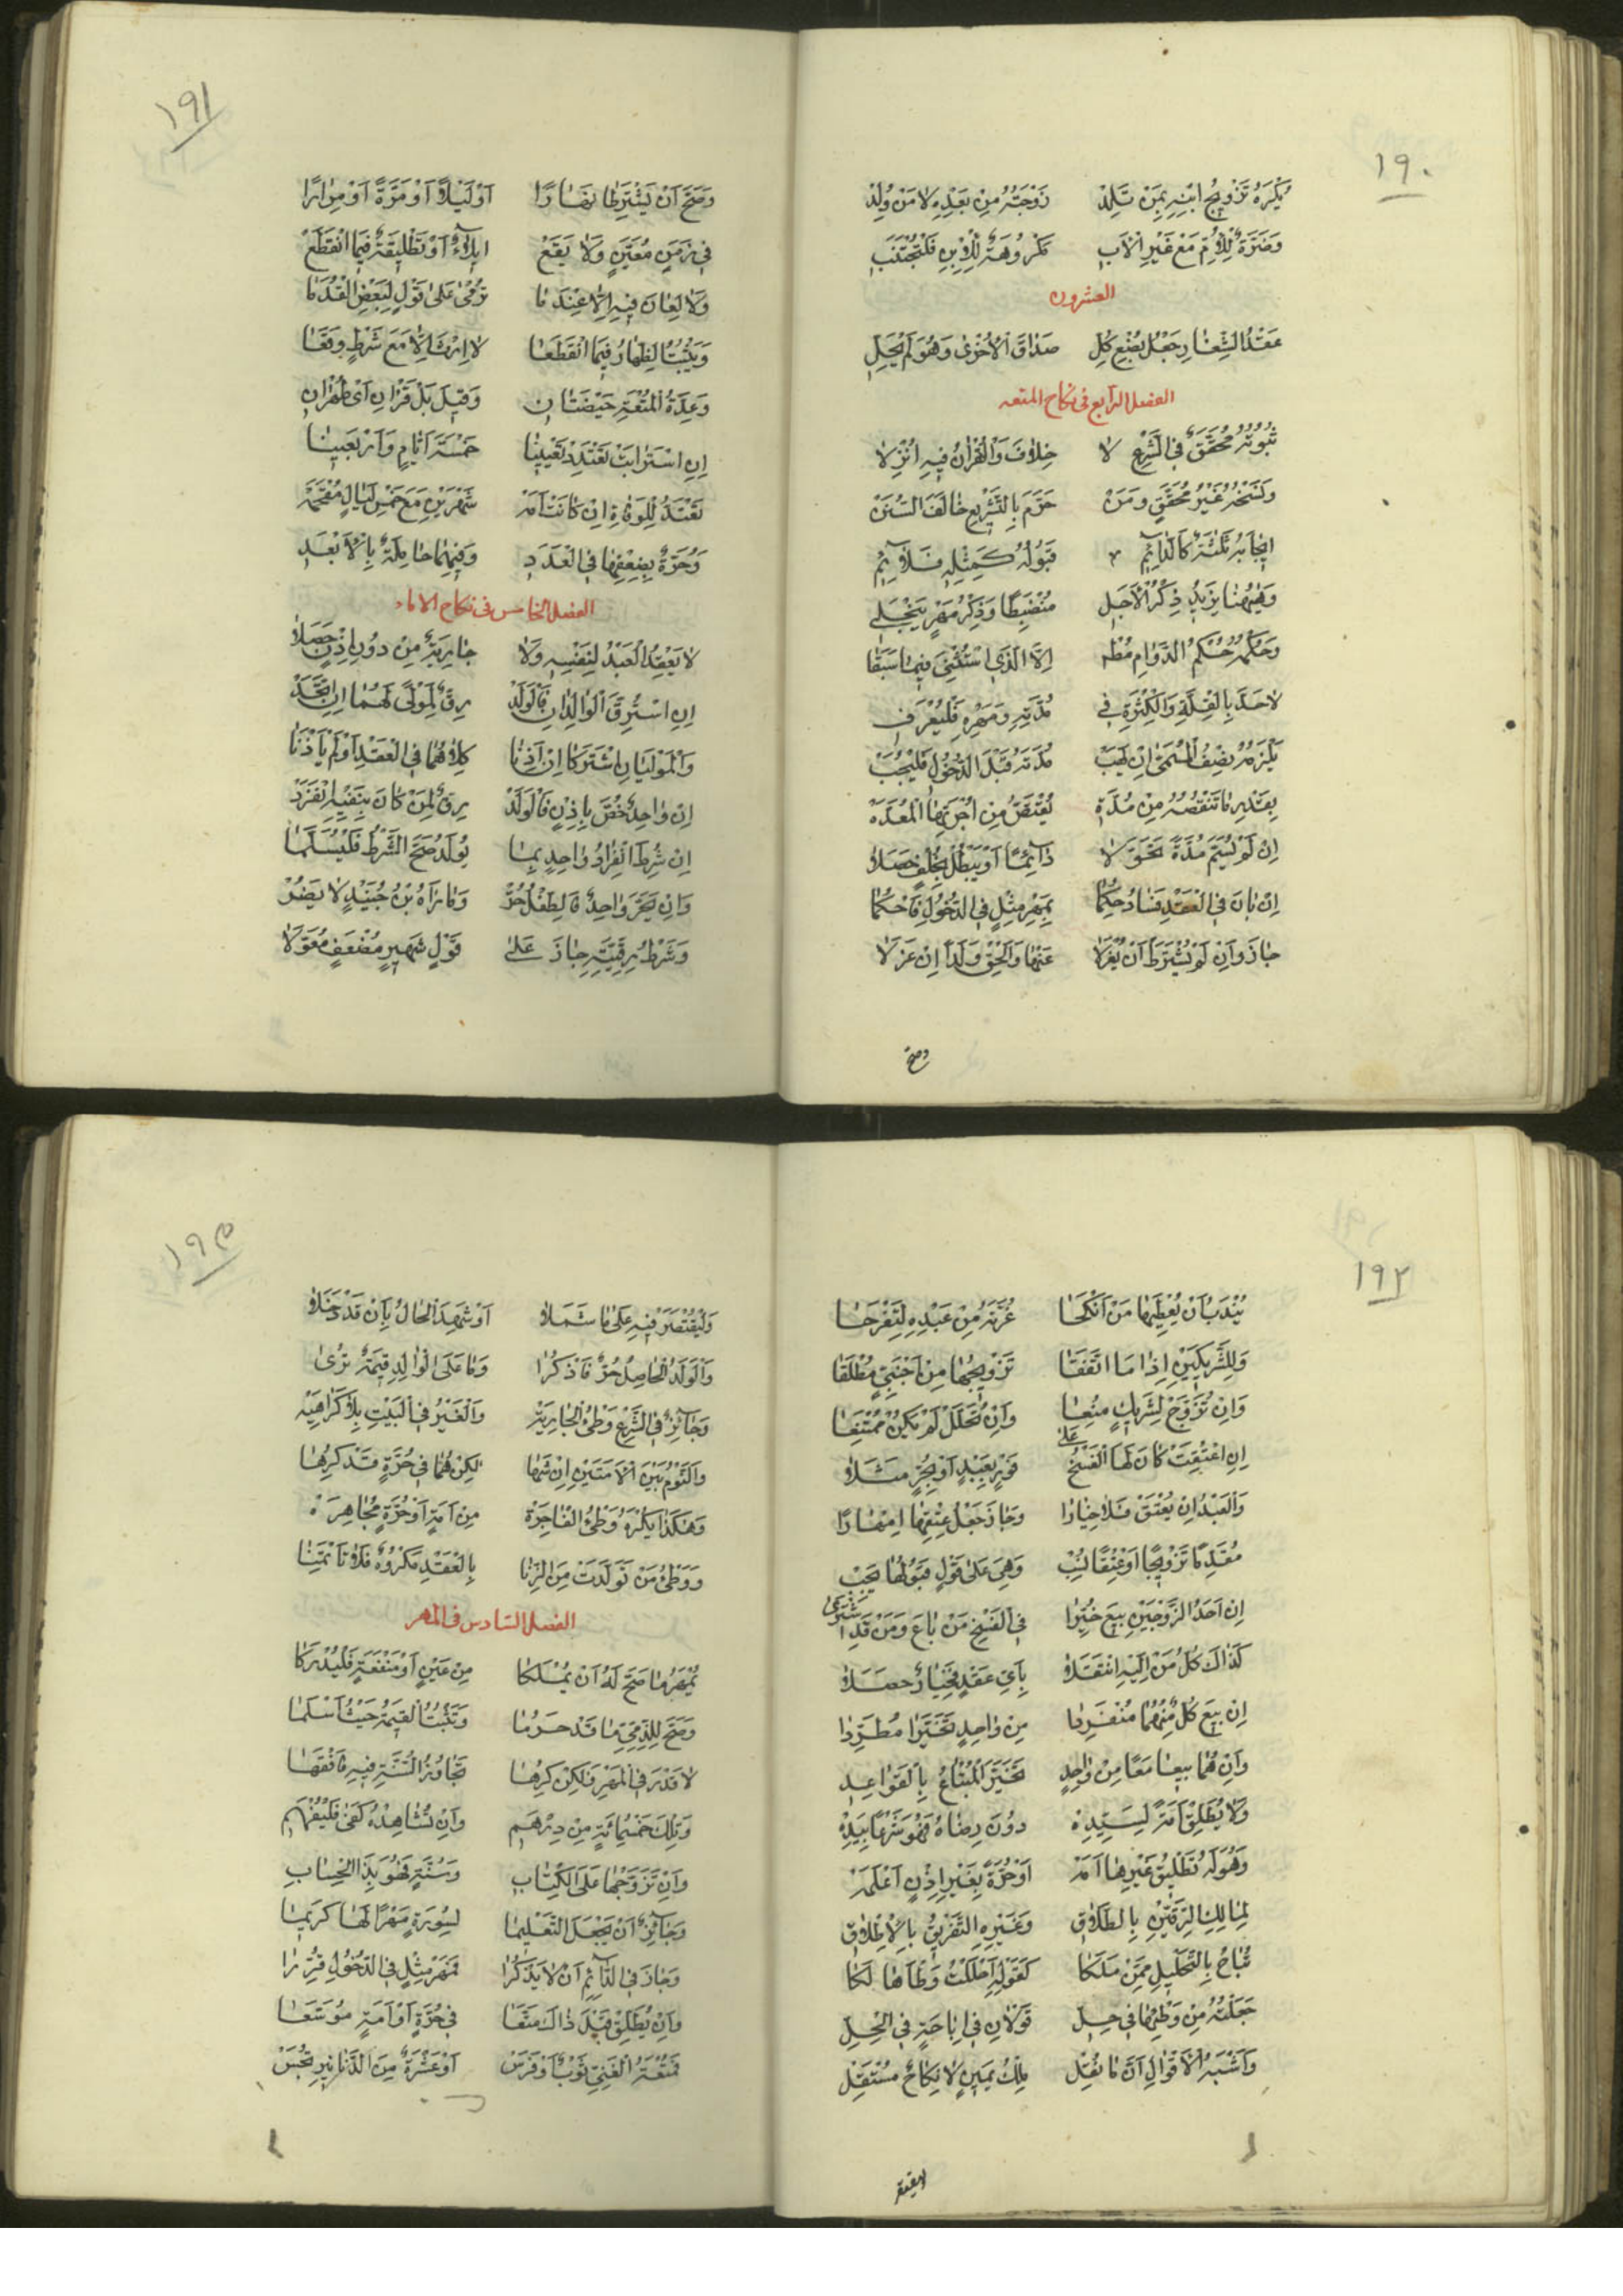 ١٩٠
يُكْرَهُ تَزْوِيجُ ابْنِهِ بِمَنْ تَلِدْ زَوْجَتُهُ مِنْ بَعْدِهِ لَا مَنْ وُلِدْ
وَضَرَّةٌ لِلْأُمِّ مَعْ غَيْرِ الْأَبِ مَكْرُوهَةٌ لِلْإِبْنِ فَلْتُجْتَنَبِ
العشرون
عَقْدُ الشِّغَارِ جَعْلُ بُضْعِ كُلِّ صَدَاقَ الْأُخْرَى وَهُوَ لَمْ يُحَلِّ
الفصل الرابع في نكاح المتعه
ثُبُوتُهُ مُحَقَّقٌ فِي الشَّرْعِ لَا خِلَافَ وَالْقُرْآنُ فِيهِ أُنْزِلَا
وَنَسْخُهُ غَيْرُ مُحَقَّقٍ وَمَنْ حَرَّمَ بِالتَّشْرِيعِ خَالَفَ السُّنَنْ
إِيجَابُهُ ثَلَاثَةٌ كَالدَّائِمِ قَبُولُهُ كَمِثْلِهِ فَلَائِمِ
وَهٰهُنَا يَزِيدُ ذِكْرُ الْأَجَلِ مُنْضَبِطًا وَذِكْرُ مَهْرٍ يَنْجَلِي
وَحُكْمُهُ حُكْمُ الدَّوَامِ مُطْ إِلَّا الَّذِي اسْتُثْنِيَ فِيمَا سَبَقَا
لَا حَدَّ بِالْقِلَّةِ وَالْكَثْرَةِ فِي مُدَّتِهِ وَمَهْرِهِ فَلْيُعْرَفِ
يَلْزَمُهُ نِصْفُ الْمُسَمَّى إِنْ يَهَبْ مُدَّتَهُ قَبْلَ الدُّخُولِ فَلْيُجَبْ
بِقَدْرِ مَا تَنْقُصُهُ مِنْ مُدَّةِ يُقْتَصُّ مِنْ أُجْرَتِهَا الْمُعَدَّةِ
إِنْ لَمْ يُسَمِّ مُدَّةً تَحَقَّقَ لَا دَائِمًا أَوْ يَبْطُلْ بِخُلْفٍ حَصَلَا
إِنْ بَانَ فِي الْعَقْدِ فَسَادٌ حُكِمَا بِمَهْرِ مِثْلٍ فِي الدُّخُولِ فَاحْكُمَا
جَازَ وَإِنْ لَمْ يُشْتَرَطْ أَنْ يُعْزَلَا عَنْهَا وَأَلْحِقْ وَلَدًا إِنْ عَزَلَا
وصح
١٩١
وَصَحَّ أَنْ يَشْتَرِطَا نَهَارًا أَوْ لَيْلًا أَوْ مَرَّةً أَوْ مِرَارًا
فِي زَمَنٍ مُعَيَّنٍ وَلَا يَقَعْ إِيلَاءٌ أَوْ تَطْلِيقَةٌ فِيمَا انْقَطَعْ
وَلَا لِعَانَ فِيهِ إِلَّا عِنْدَمَا تُرْمَى عَلَى قَوْلٍ لِبَعْضِ الْقُدَمَا
وَيَثْبُتُ الظِّهَارُ فِيمَا انْقَطَعَا لَا إِرْثَ إِلَّا مَعَ شَرْطٍ وَقَعَا
وَعِدَّةُ الْمُتْعَةِ حَيْضَتَانِ وَقِيلَ بَلْ قَرْآنِ أَيْ طُهْرَانِ
إِنِ اسْتَرَابَتْ تَعْتَدِدْ يَقِينَا خَمْسَةَ أَيَّامٍ وَأَرْبَعِينَا
تَعْتَدُّ لِلْوَفَاةِ إِنْ كَانَتْ أَمَهْ شَهْرَيْنِ مَعَ خَمْسِ لَيَالٍ مُفْحَمَهْ
وَحُرَّةٌ بِضِعْفِهَا فِي الْعَدَدِ وَفِيهِمَا حَامِلَةٌ بِالْأَبْعَدِ
الفصل الخامس في نكاح الاماء
لَا يَعْقِدُ الْعَبْدُ لِنَفْسِهِ وَلَا جَارِيَةٌ مِنْ دُونِ إِذْنٍ حَصَلَا
إِنِ اسْتُرِقَّ الْوَالِدَانِ فَالْوَلَدْ رِقٌّ لِمَوْلًى لَهُمَا إِنِ اتَّحَدْ
وَالْمَوْلَيَانِ اشْتَرَكَا إِنْ أَذِنَا كِلَاهُمَا فِي الْعَقْدِ أَوْ لَمْ يَأْذَنَا
إِنْ وَاحِدٌ خُصَّ بِإِذْنٍ فَالْوَلَدْ رِقٌّ لِمَنْ كَانَ بِنَفْيِهِ انْفَرَدْ
إِنْ شُرِطَ انْفِرَادُ وَاحِدٍ بِمَا يُولَدُ صَحَّ الشَّرْطُ فَلْيُسَلَّمَا
وَإِنْ يُحَرَّ وَاحِدٌ فَالطِّفْلُ حُرْ وَمَا رَآهُ بْنُ جُنَيْدٍ لَا يَضُرْ
وَشَرْطُ رِقِّيَّتِهِ جَازَ عَلَى قَوْلٍ شَهِيرٍ مُضْعَفٍ مُعَوَّلَا
١٩٢
يُنْدَبُ أَنْ يُعْطِيَهَا مَنْ أَنْكَحَا غُرَّتَهُ مِنْ عَبْدِهِ لِتَفْرَحَا
وَلِلشَّرِيكَيْنِ إِذَا مَا اتَّفَقَا تَزْوِيجُهَا مِنْ أَجْنَبِيٍّ مُطْلَقَا
وَإِنْ تُزَوَّجْ لِشَرِيكٍ مُنِعَا وَإِنْ تُحَلَّلْ لَمْ يَكُنْ مُمْتَنِعَا
إِنْ أُعْتِقَتْ كَانَ لَهَا الْفَسْخُ عَلَى بِعَبْدٍ أَوْ بِحُرٍّ مَثَلَا
وَالْعَبْدُ إِنْ يُعْتَقْ فَلَا خِيَارَا وَجَازَ جَعْلُ عِتْقِهَا إِمْهَارَا
مُقَدِّمًا تَزْوِيجًا أَوْ عِتْقًا نُدِبْ وَهِيَ عَلَى قَوْلٍ قَبُولُهَا يَجِبْ
إِنْ أَحَدُ الزَّوْجَيْنِ بِيعَ خُيِّرَا فِي الْفَسْخِ مَنْ بَاعَ وَمَنْ قَدِ اشْتَرَى
كَذَاكَ كُلُّ مَنْ إِلَيْهِ انْتَقَلَا بِأَيِّ عَقْدٍ فَخِيَارٌ حَصَلَا
إِنْ بِيعَ كُلٌّ مِنْهُمَا مُنْفَرِدَا مِنْ وَاحِدٍ تَخَيَّرَا مُطَّرِدَا
وَإِنْ هُمَا بِيعَا مَعًا مِنْ وَاحِدِ تَخَيَّرَ الْمُبْتَاعُ بِالْقَوَاعِدِ
وَلَا يُطَلِّقْ أَمَةً لِسَيِّدِهْ دُونَ رِضَاهُ فَهْوَ شَرْعًا بِيَدِهْ
وَهُوَ لَهُ تَطْلِيقُ غَيْرِهَا أَمَهْ أَوْ حُرَّةً بِغَيْرِ إِذْنٍ أَعْلَمَهْ
لِمَالِكِ الرِّقَّيْنِ بِالطَّلَاقِ وَغَيْرِهِ التَّفْرِيقُ بِالْإِطْلَاقِ
تُبَاحُ بِالتَّحْلِيلِ مِمَّنْ مَلَكَا كَقَوْلِهِ أَحْلَلْتُ وَطْأَهَا لَكَا
جَعَلْتُهُ مِنْ وَطْئِهَا فِي حِلِّ قَوْلَانِ فِي إِبَاحَةٍ فِي الْحِلِّ
وَأَشْبَهُ الْأَقْوَالِ أَنَّ مَا نُقِلْ مِلْكُ يَمِينٍ لَا نِكَاحٌ مُسْتَقِلْ
١٩٣
وَلْيُقْتَصَرْ فِيهِ عَلَى مَا شَمَلَا أَوْ شَهِدَ الْحَالُ بِأَنْ قَدْ دَخَلَا
وَالْوَلَدُ الْحَاصِلُ حُرٌّ فَاذْكُرَا وَمَا عَلَى الْوَالِدِ قِيمَةٌ تُرَى
وَجَائِزٌ فِي الشَّرْعِ وَطْئُ الْجَارِيَهْ وَالْغَيْرُ فِي الْبَيْتِ بِلَا كَرَاهِيَهْ
وَالنَّوْمُ بَيْنَ الْأَمَتَيْنِ لٰكِنْ هُمَا فِي حُرَّةٍ قَدْ كُرِهَا
وَهٰكَذَا يُكْرَهُ وَطْئُ الْفَاجِرَهْ مِنْ أَمَةٍ أَوْ حُرَّةٍ مُجَاهِرَهْ
وَوَطْئُ مَنْ تَوَلَّدَتْ مِنَ الزِّنَا بِالْعَقْدِ مَكْرُوهٌ فَلَا تَأْمَنَنَّا
الفصل السادس في المهر
يُمْهَرُ مَا صَحَّ لَهُ أَنْ يُمْلَكَا مِنْ عَيْنٍ أَوْ مَنْفَعَةٍ فَلْيُدْرَكَا
وَصَحَّ لِلذِّمِّيِّ مَا قَدْ حَرُمَا وَتَثْبُتُ الْقِيمَةُ حَيْثُ أَسْلَمَا
لَا قَدْرَ فِي الْمَهْرِ وَلٰكِنْ كُرِهَا تَجَاوُزُ السُّنَّةِ فِيهِ فَافْقَهَا
وَتِلْكَ خَمْسُمِائَةٍ مِنْ دِرْهَمِ وَإِنْ تُشَاهِدْهُ كَفَى فَلْيُفْهَمِ
وَإِنْ تَزَوَّجْهَا عَلَى الْكِتَابِ وَسُنَّةٍ فَهُوَ بِذَا الْحِسَابِ
وَجَائِزٌ أَنْ يَجْعَلَ التَّعْلِيمَا لِسُورَةٍ مَهْرًا لَهَا كَرِيمَا
وَجَازَ فِي الدَّائِمِ أَنْ لَا يُذْكَرَا فَمَهْرُ مِثْلٍ فِي الدُّخُولِ قُرِّرَا
وَإِنْ يُطَلِّقْ قَبْلَ ذَاكَ مَتَّعَا فِي حُرَّةٍ أَوْ أَمَةٍ مُوَسِّعَا
فَمُتْعَةُ الْغَنِيِّ ثَوْبٌ أَوْ فَرَسْ أَوْ عَشْرَةٌ مِنَ الدَّنَانِيرِ